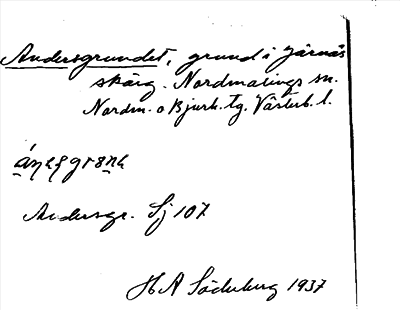 Andersgrundet, grund i Järnäs
skärg. Nordmalings sn.
Nordm. o Bjurh. tg. Västerb. l.
Andersgr. Sj 107
H A Söderberg 1937